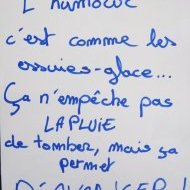 L'humour
c'est comme les
essuies-glace...
Ça n'empêche pas
LA PLUIE
de tomber, mais ça
permet
D'AVANCER!